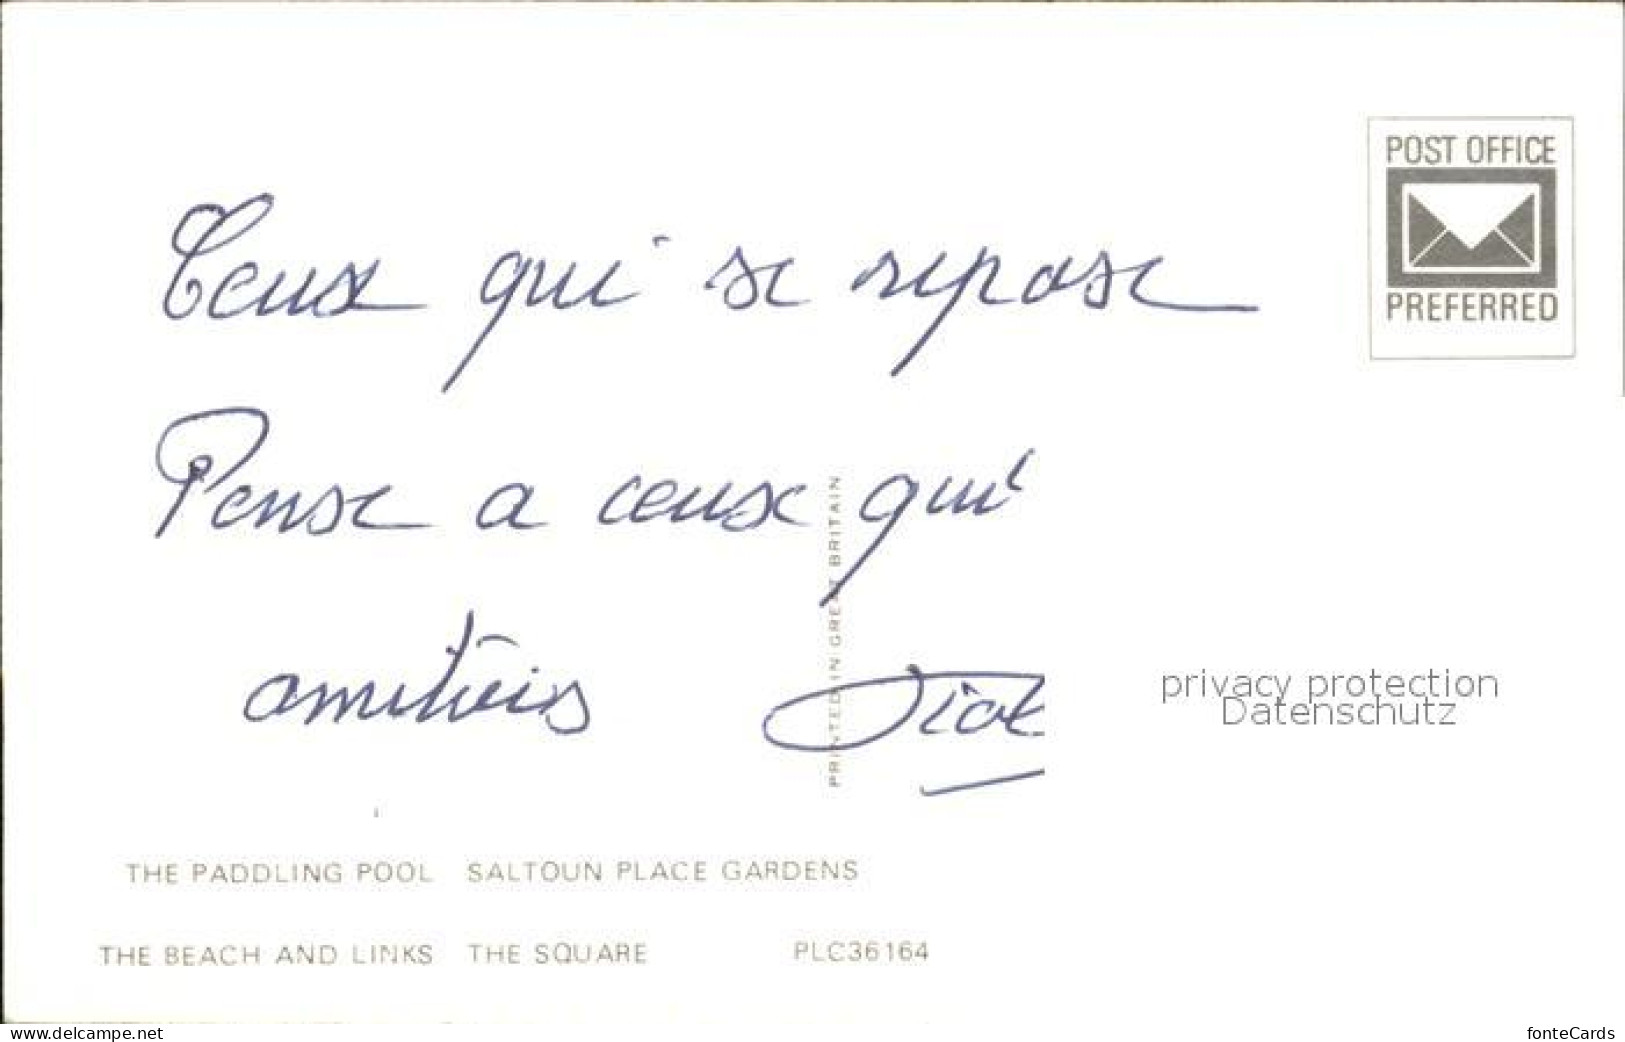 POST OFFICE
PREFERRED
Ceux qui se repose
Pense a ceux qui
amitiéis
PRINTED IN GREAT BRITAIN
privacy protection
Datenschutz
THE PADDLING POOL SALTOUN PLACE GARDENS
THE BEACH AND LINKS THE SQUARE PLC36164
www.delcampe.net
fonteCards